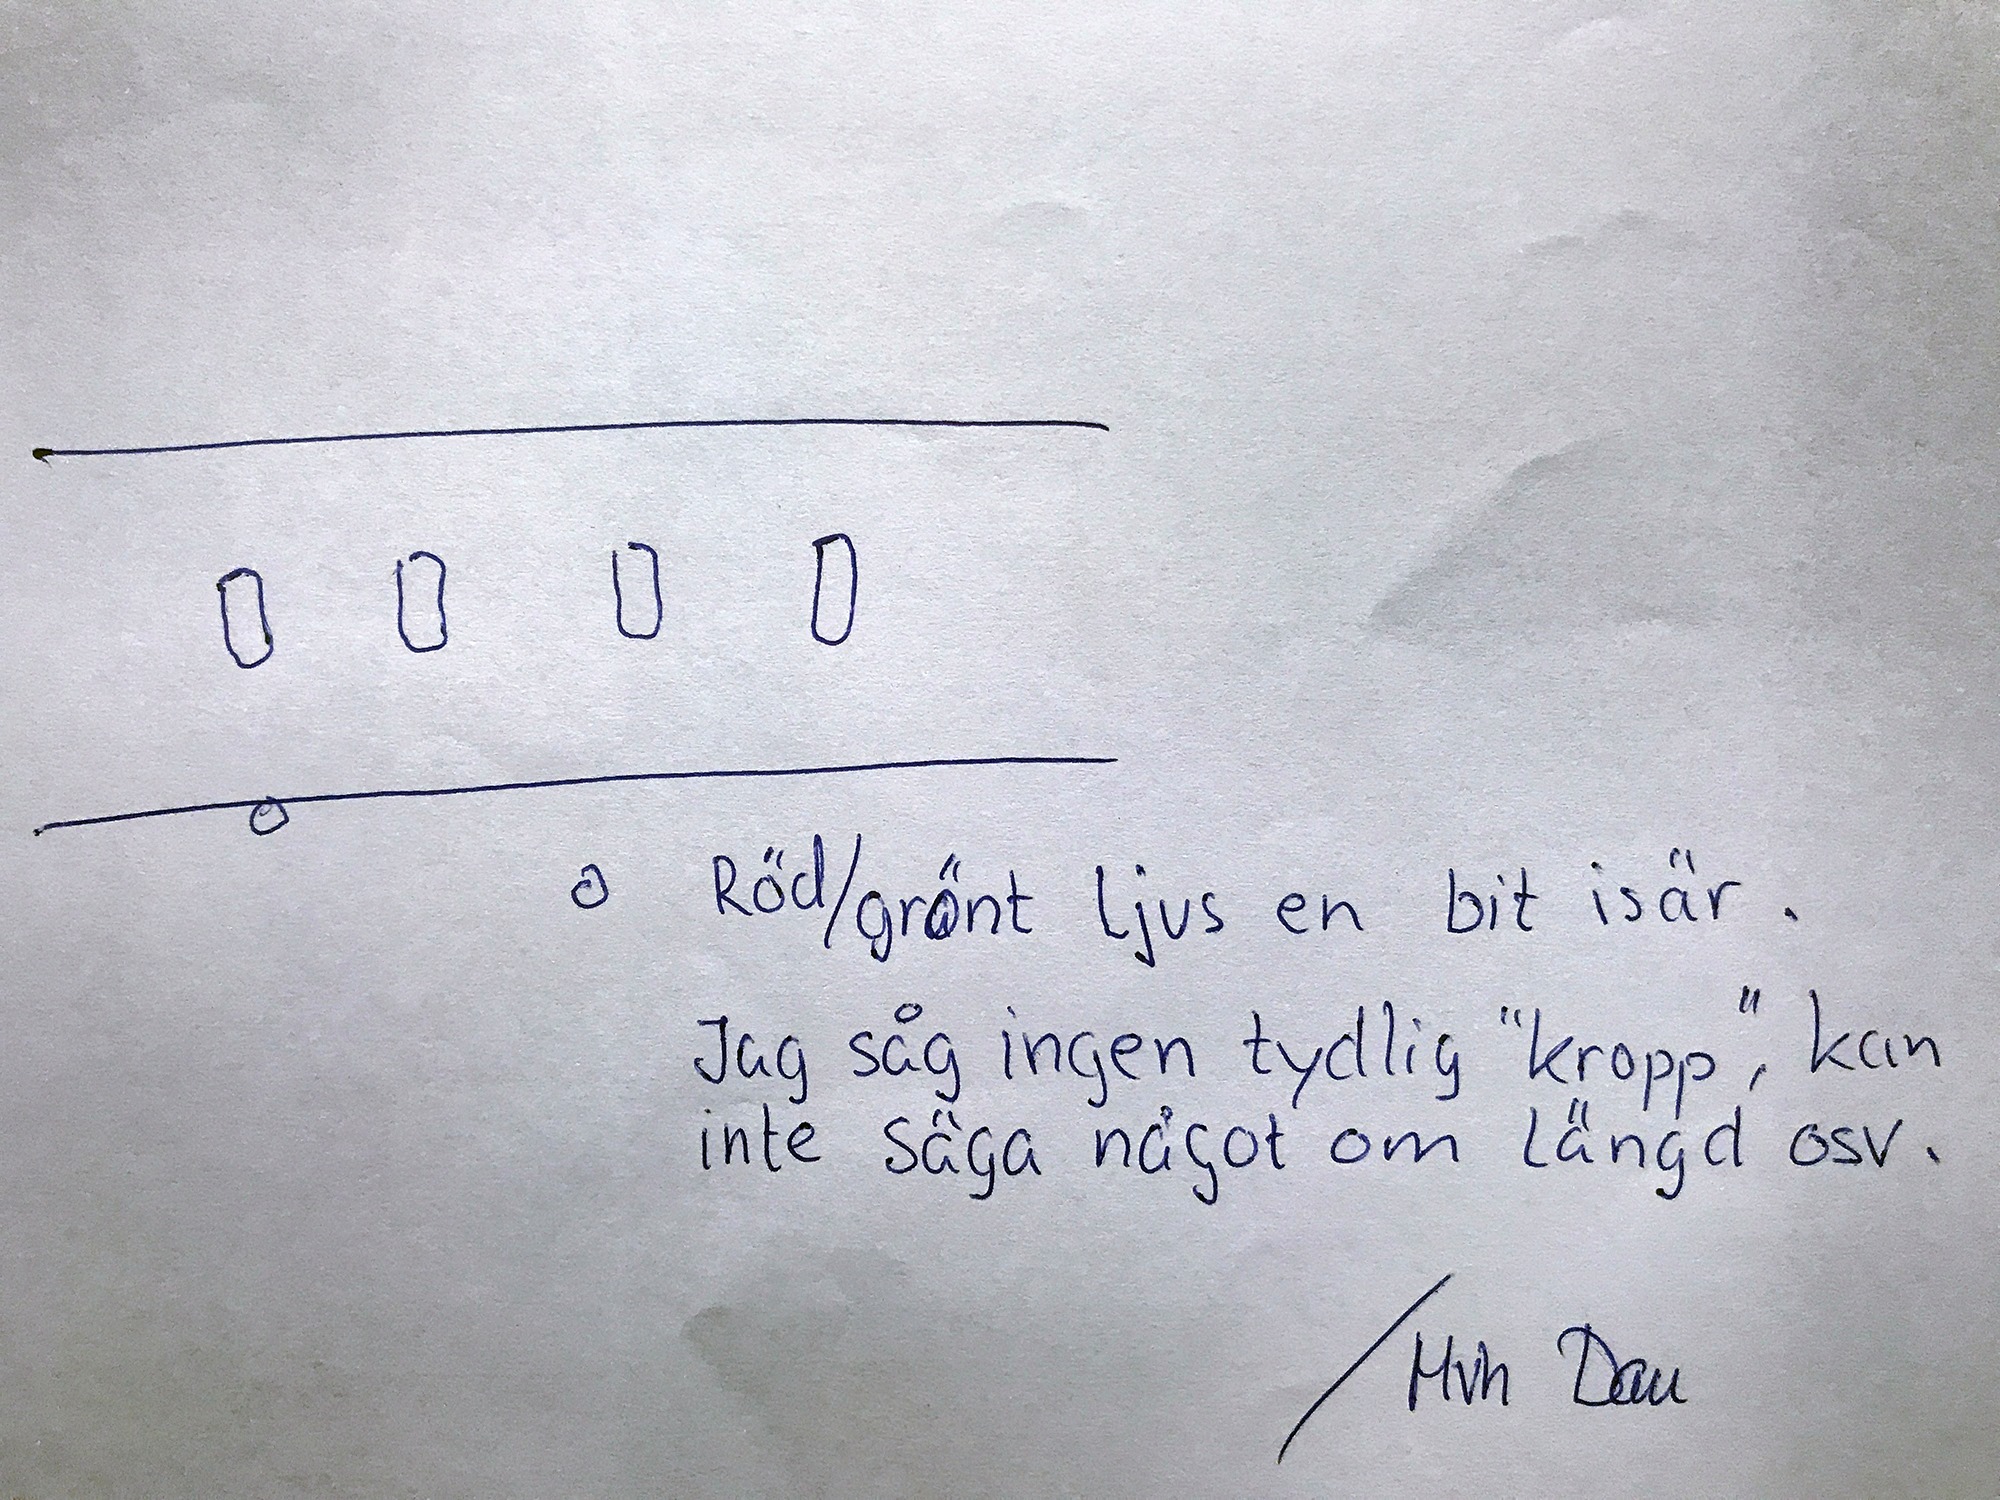 Röd/grönt ljus en bit isär.
Jag såg ingen tydlig "kropp", kan
inte säga något om längd osv.
/Mvh Dan